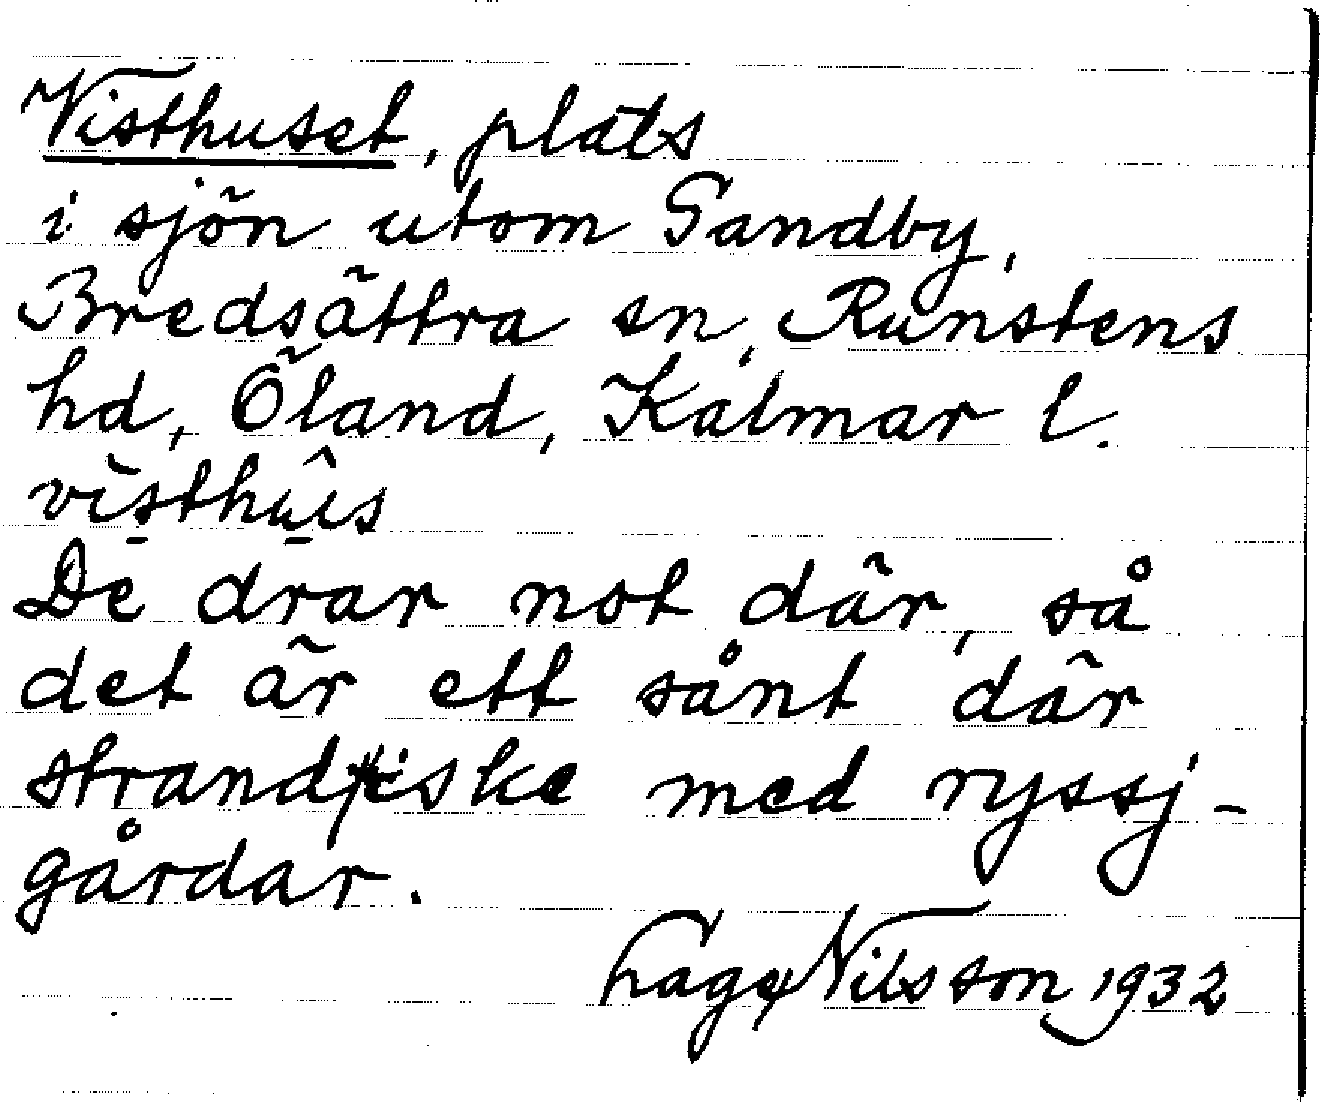 Visthuset, plats
i sjön utom Sandby,
Bredsättra sn, Runstens
hd, Öland, Kalmar l.
vìsthûs
De drar not där, så
det är ett sånt där
strandfiske med ryssj-
gårdar.
Lage Nilsson 1932